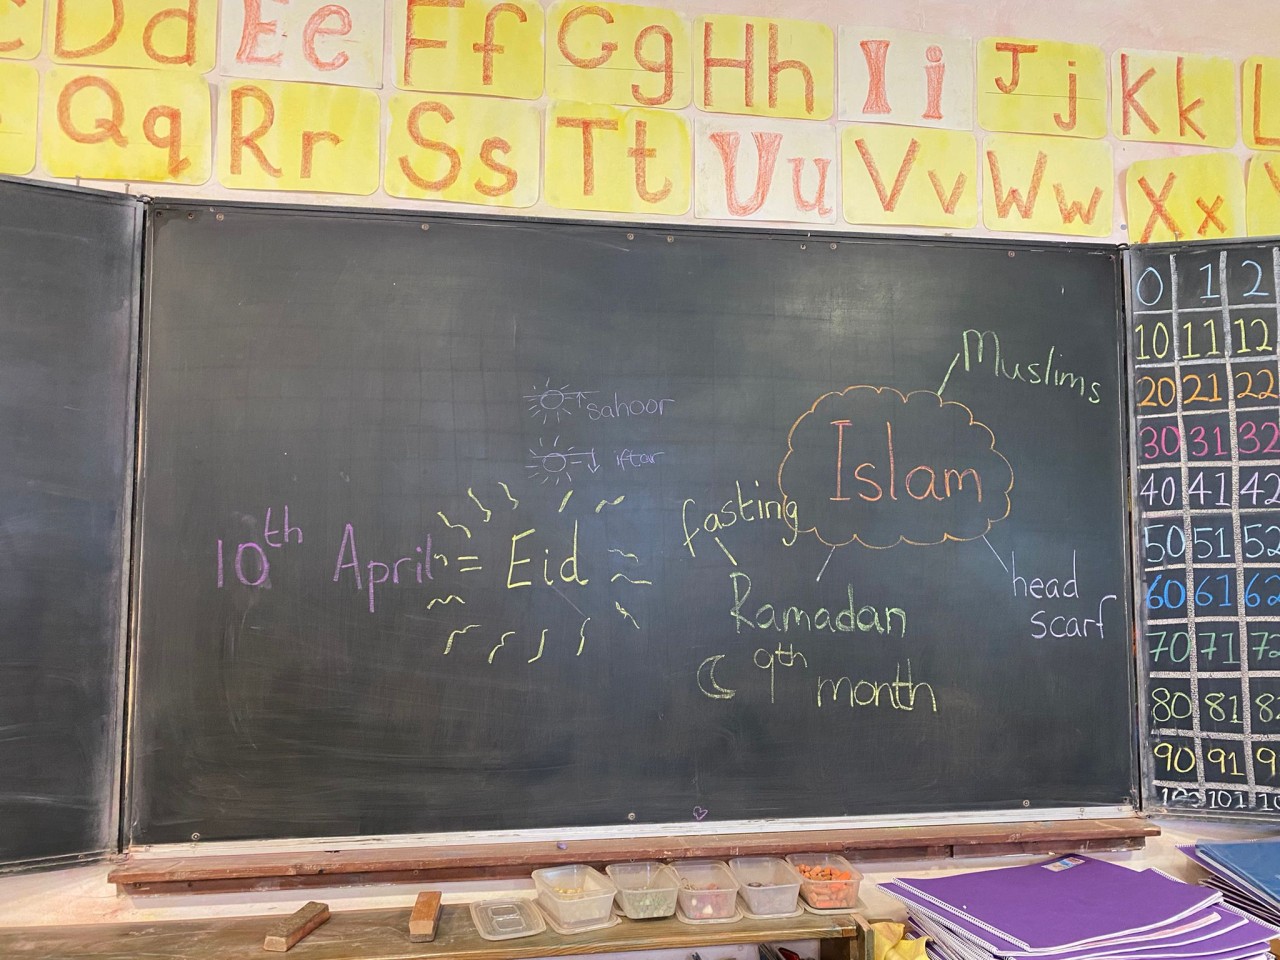 Dd Ee Ff Gg Hh Ii Jj Kk L
Qq Rr Ss Tt Uu Vv Ww Xx
Muslims
Islam
sahoor
iftar
fasting
10th April = Eid
head
scarf
Ramadan
9th
month
0 1 2
10 11 12
20 21 22
30 31 32
40 41 42
50 51 52
60 61 62
70 71 72
80 81 8
90 91 9
100 101 10